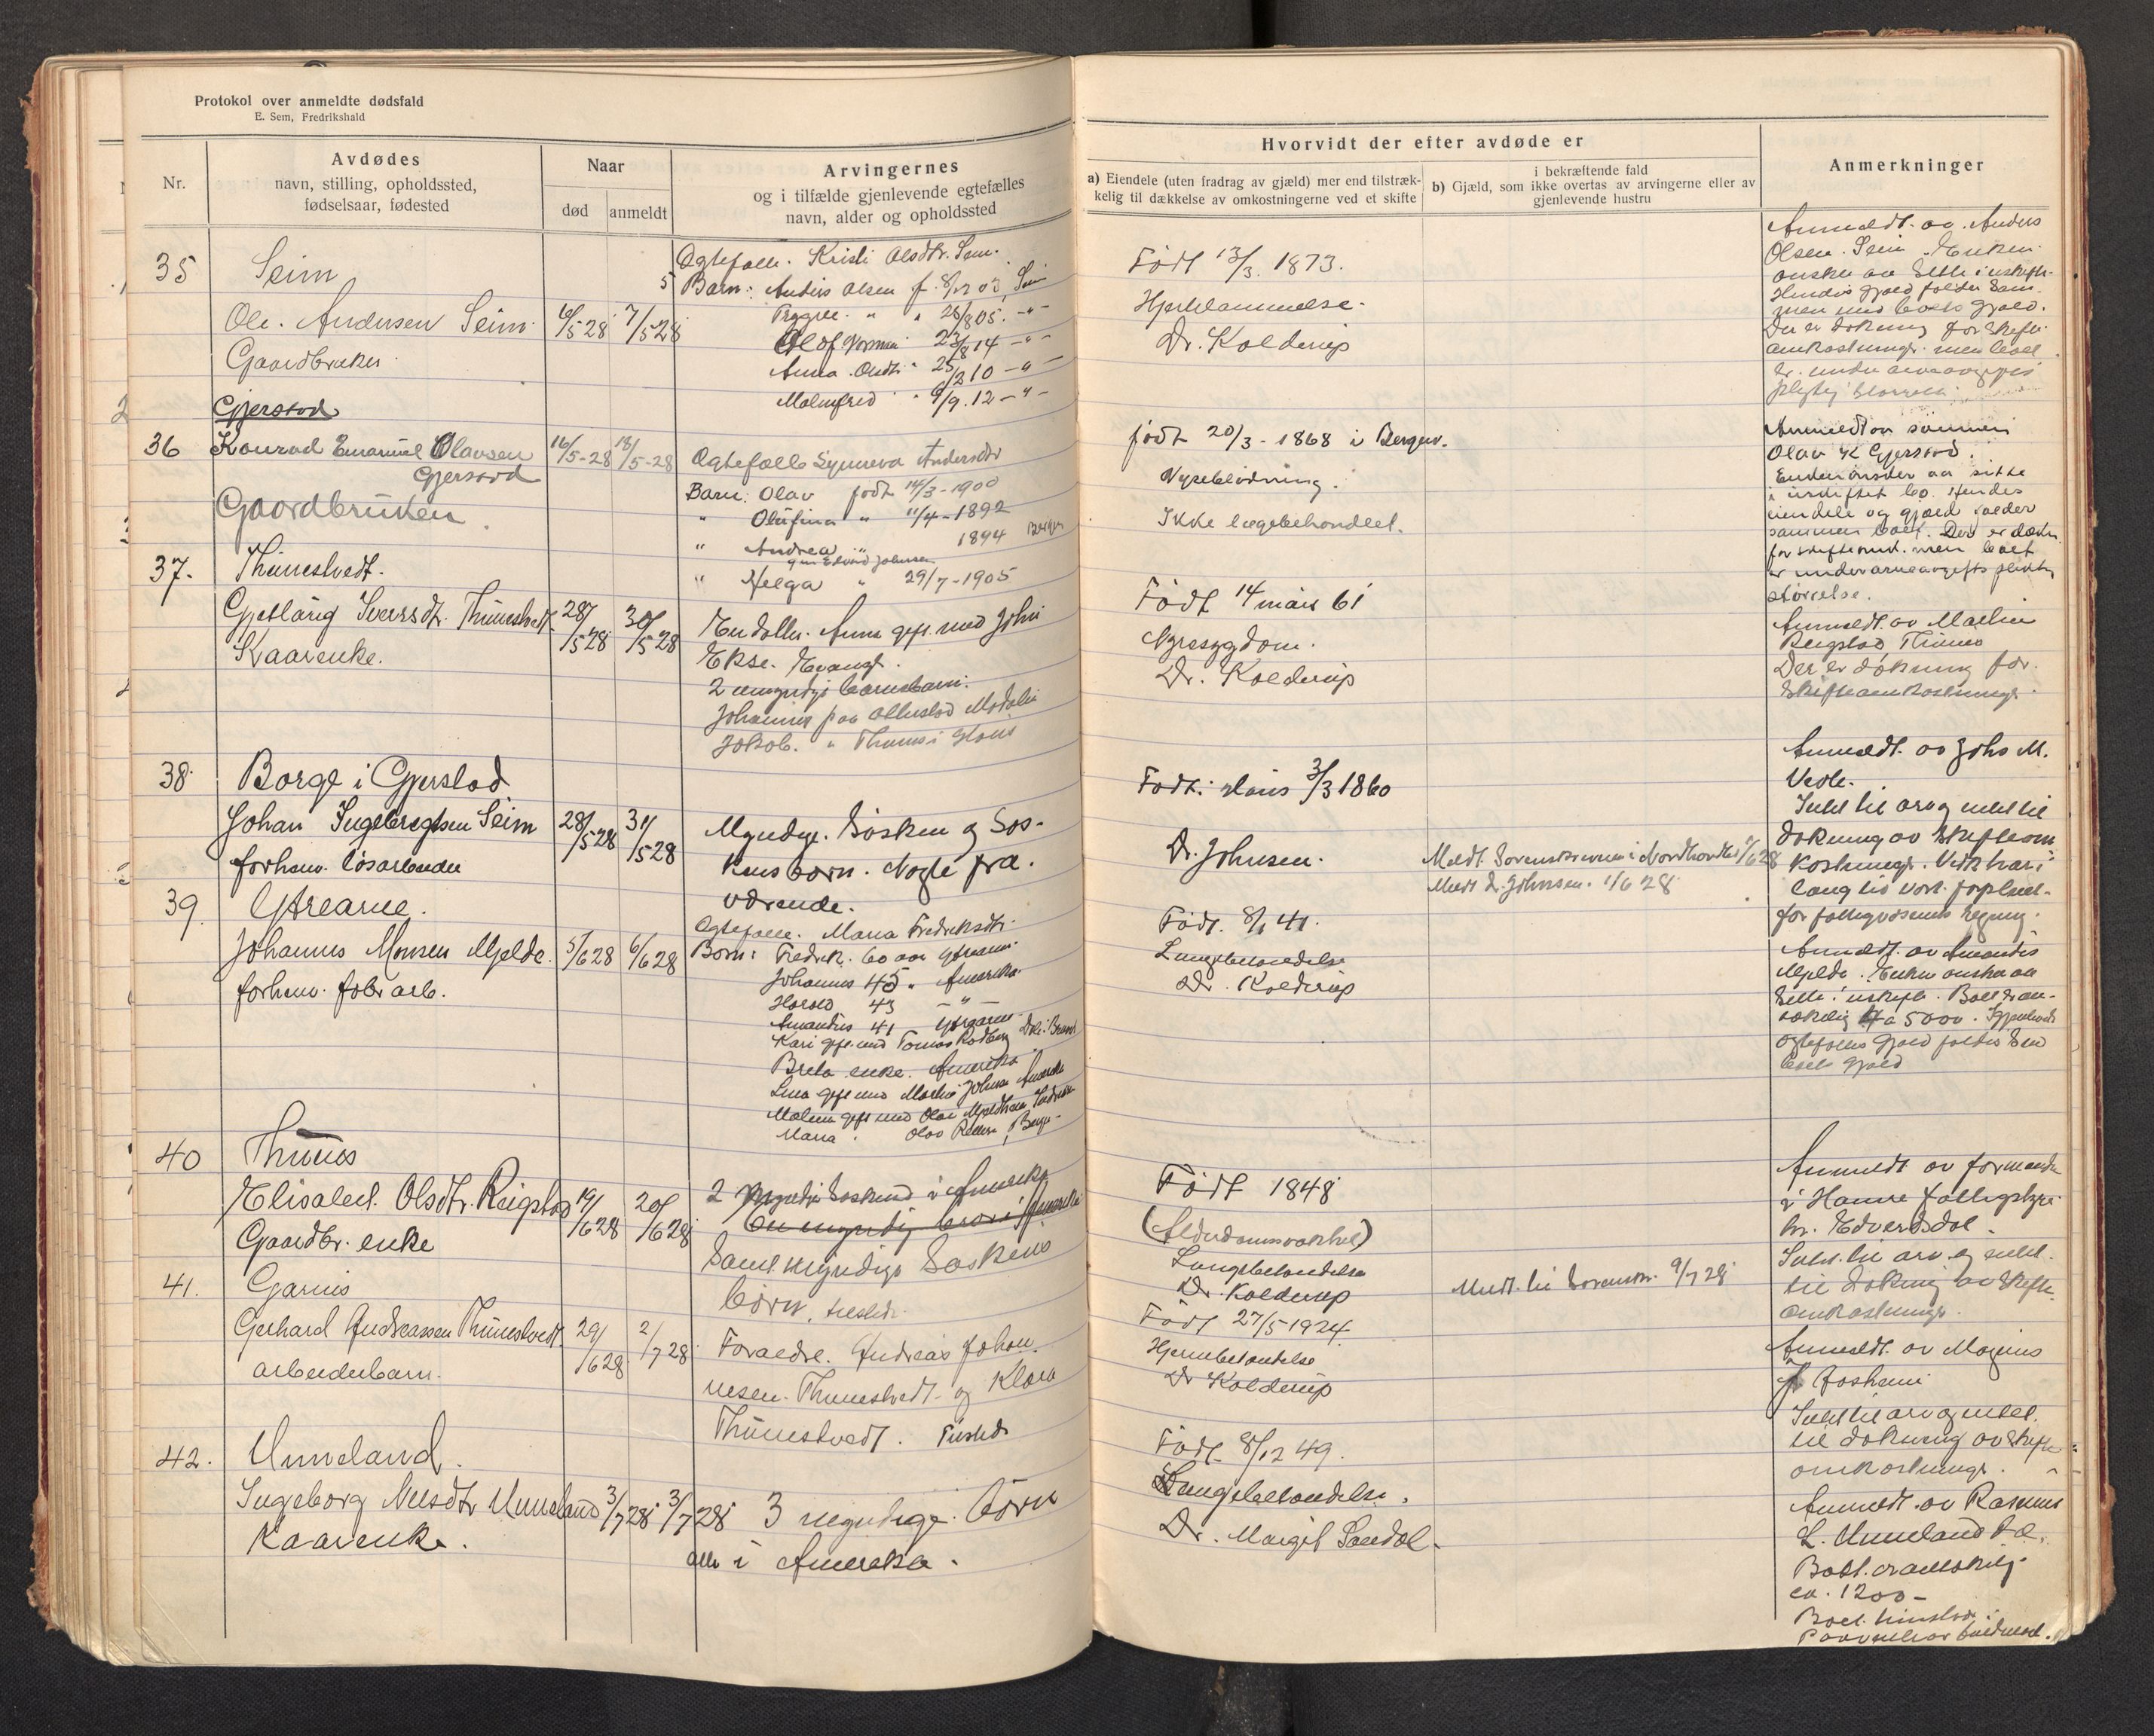 Protokol over anmeldte dødsfald
E. Sem, Fredrikshald
Nr.
Avdødes
navn, stilling, opholdssted,
fødselsaar, fødested
Naar
død
anmeldt
Arvingernes
og i tilfælde gjenlevende egtefælles
navn, alder og opholdssted
Hvorvidt der efter avdøde er
a) Eiendele (uten fradrag av gjæld) mer end tilstræk-
kelig til dækkelse av omkostningerne ved et skifte
i bekræftende fald
b) Gjæld, som ikke overtas av arvingerne eller av
gjenlevende hustru
Anmerkninger
35
Seim
Ole Andersen Seim
Gaardbruker
6/5 28
7/5 28
Egtefælle. Kristi Olsdtr. Seim
5 Barn: Anders Olsen f. 8/12 03 Seim
Trygve " " 28/8 05. - " -
Olof Norman 23/8 14 - " -
Anna Olsdtr 25/2 10 - " -
Malmfred " 9/9. 12 - " -
Født 13/3. 1873.
Hjertelammelse.
Dr. Kolderup
Anmeldt. av Anders
Olsen Seim. Enken
ønsker aa sitte i uskifte.
Hendes gjæld følder sam
men med boets gjæld.
Der er dækning for skifte
omkostninger men boet
er under arveavgifts
pligtig størrelse
36
Gjerstad
Konrad Emanuel Olavsen
Gjerstad
Gaardbruker
16/5-28
18/5-28
Egtefælle Synneva Andersdtr
Barn: Olav født 14/3-1900
" Olufina " 11/4-1892
" Andrea " 1894 Bergen
gm Edvard Johnsen
" Helga " 29/7-1905
født 20/3-1868 i Bergen.
Nyseblødning.
Ikke lægebehandlet.
Anmeldt av sønnen
Olav K Gjerstad.
Enken ønsker aa sitte
i uskiftet bo. Hendes
eiendele og gjæld falder
sammen boets. Der er dækn.
for skifteomk. men boet
er under arveavgifts pliktig
størrelse.
37.
Thunestvedt.
Gjetlaug Iversdtr. Thunestvedt
Kaarenke.
28/5 28
30/5 28
En datter. Anna gift med John
Ekse. Evang.
2 umyndige barnebarn.
Johannes paa Modalen
Jakob. " Thunes i Haus
Født 14 mars 61
Nyresygdom.
Dr. Kolderup
Anmeldt av Martin
Reigstad, Thunes
Der er dækning for
skifteomkostninger.
38
Borge i Gjerstad
Johan Ingebregtsen Seim
forhenv. løsarbeider
28/5 28
31/5 28
Myndige. Søsken og Søs-
kensbørn. Nogle fra-
værende.
Født: Haus 3/3 1860
Dr. Johnsen.
Meldt Sorenskriveren i Nordhordland 1/6 28
Meldt Dr. Johnsen. 1/6 28
Anmeldt. av Johs M.
Vedle.
Intet til arv og intet til
dækning av skifteom
kostninger. Vedk. har i
lang tid vært forpleiet
for fattigvæsenets regning.
39
Ytrearne.
Johannes Monsen Mjelde.
forhenv. fabr. arb.
5/6 28
6/6 28
Egtefælle. Maria Fredriksdtr.
Børn: Fredrik. 60 aar Ytrearne.
Johannes 45 " Amerika.
Harald 43 - " -
Amandus 41 Ytrearne
Kari gift med Tomas
Brita enke. Amerika.
Lina gift med Martin Johnsen Amerika
Malene gift med Olai
Maria " Olav Bergen
Født. 8/1 41.
Lungebetændelse
Dr. Kolderup
Anmeldt. av Amandus
Mjelde. Enken ønsker aa
sitte i uskifte. Boet er an-
takelig ca 5000. Gjenlevende
egtefælles gjæld falder sam
boets gjæld
40
Thunes
Elisabet. Olsdtr. Reigstad
Gaardbr. enke
19/6 28
20/6 28
2 myndige søskend i Amerika
en myndig bror i Amerika
samt myndige søskens
børn.
Født 1848
(Alderdomssvakhet)
Lungebetændelse
Dr. Kolderup
Meldt til Sorenskr. 9/7 28
Anmeldt av formanden
i Hamre fattigstyre
hr. Edvardsdal.
Intet til arv og intet.
til dækning av skifte
omkostninger.
41.
Garnes
Gerhard Andreassen Thunestvedt
arbeiderbarn.
29/6 28
2/7 28
Forældre. Andreas Johan-
nesen. Thunestvedt og Klara
Thunestvedt.
Født 27/5 1924
Hjernebetændelse
Dr Kolderup
Anmeldt av Magnus
J.
Intet til arv og intet.
til dækning av skifte
omkostninger.
42.
Unneland.
Ingeborg Nilsdtr Unneland
Kaarenke.
3/7 28
3/7 28
3 myndige børn
alle i Amerika.
Født 8/12 49.
Lungebetændelse.
Dr. Margit Sandal.
Anmeldt av Rasmus
L. Unneland
Boet. er antakelig
ca. 1200-